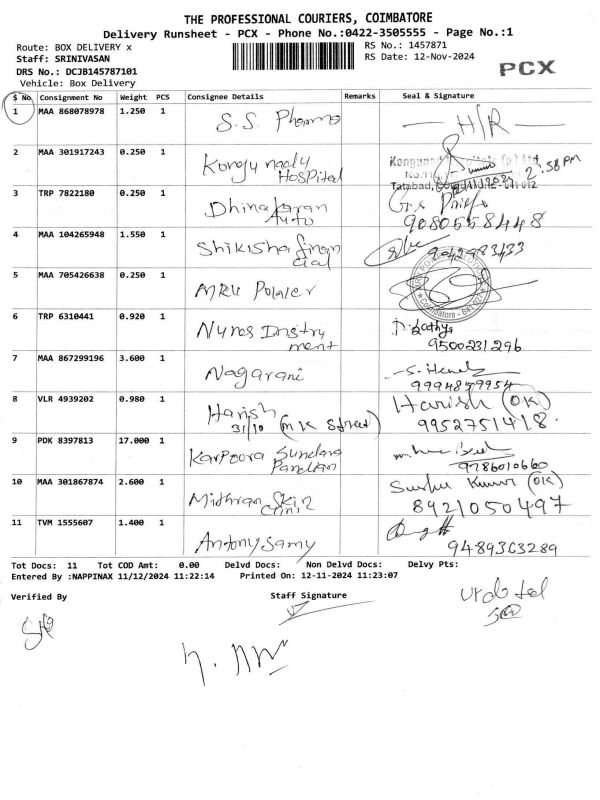 THE PROFESSIONAL COURIERS, COIMBATORE
Delivery Runsheet - PCX - Phone No.:0422-3505555 - Page No.:1
Route: BOX DELIVERY x
RS No.: 1457871
Staff: SRINIVASAN
RS Date: 12-Nov-2024
DRS No.: DCJB145787101
PCX
Vehicle: Box Delivery
S No Consignment No Weight PCS Consignee Details Remarks Seal & Signature
1 MAA 868078978 1.250 1 S.S. Pharma H/R
2 MAA 301917243 0.250 1 Kongu naadu
Hospital
2:58 PM
3 TRP 7822180 0.250 1 Dhinakaran
Auto
9080558448
4 MAA 104265948 1.550 1 Shikisha finan
cial
9042983433
5 MAA 705426638 0.250 1
Coimbatore
6 TRP 6310441 0.920 1 Instru
ment
9500231296
7 MAA 867299196 3.600 1 Nagarani
9994849954
8 VLR 4939202 0.980 1 Harish Harish (OK)
31/10 (MK Street) 9952751418.
9 PDK 8397813 17.000 1 Karpoora Sundara
Pandian
9786010660
10 MAA 301867874 2.600 1 Mithran Skin
Clinic
Kumar (OK)
8921050497
11 TVM 1555607 1.400 1 Antonysamy
9489363289
Tot Docs: 11 Tot COD Amt: 0.00 Delvd Docs: Non Delvd Docs: Delvy Pts:
Entered By :NAPPINAX 11/12/2024 11:22:14 Printed On: 12-11-2024 11:23:07
Verified By Staff Signature